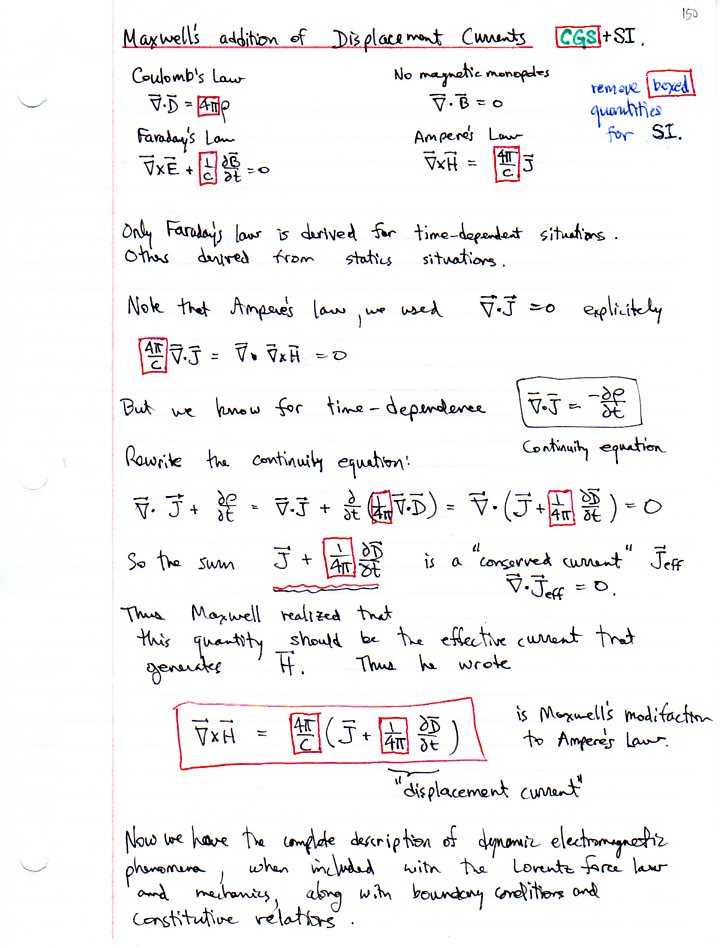 150
Maxwell's addition of Displacement Currents CGS + SI.
Coulomb's Law
∇⃗·D⃗ = 4πρ
No magnetic monopoles
∇⃗·B⃗ = 0
remove boxed
quantities
for SI.
Faraday's Law
∇⃗×E⃗ + 1/c ∂B⃗/∂t = 0
Ampere's Law
∇⃗×H⃗ = 4π/c J⃗
Only Faraday's law is derived for time-dependent situations.
Others derived from statics situations.
Note that Ampere's law, we used ∇⃗·J⃗ = 0 explicitely
4π/c ∇⃗·J⃗ = ∇⃗·∇⃗×H⃗ = 0
But we know for time-dependence ∇⃗·J⃗ = -∂ρ/∂t
Continuity equation
Rewrite the continuity equation:
∇⃗·J⃗ + ∂ρ/∂t = ∇⃗·J⃗ + ∂/∂t (1/4π ∇⃗·D⃗) = ∇⃗·(J⃗ + 1/4π ∂D⃗/∂t) = 0
So the sum J⃗ + 1/4π ∂D⃗/∂t is a "conserved current" J⃗eff
∇⃗·J⃗eff = 0.
Thus Maxwell realized that
this quantity should be the effective current that
generates H⃗. Thus he wrote
∇⃗×H⃗ = 4π/c (J⃗ + 1/4π ∂D⃗/∂t)
is Maxwell's modifaction
to Ampere's Law.
"displacement current"
Now we have the complete description of dynamic electromagnetic
phenomena, when included with the Lorentz force law
and mechanics, along with boundary conditions and
constitutive relations.